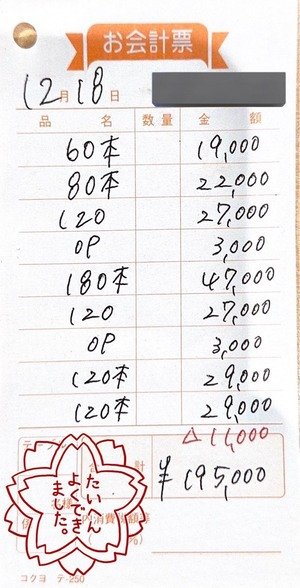 お会計票
12月18日
品名 数量 金額
60本 19,000
80本 22,000
120 27,000
OP 3,000
180本 47,000
120 27,000
OP 3,000
120本 29,000
120本 29,000
△11,000
計 ¥195,000
たいへん
よくでき
ました。
コクヨ テ-250